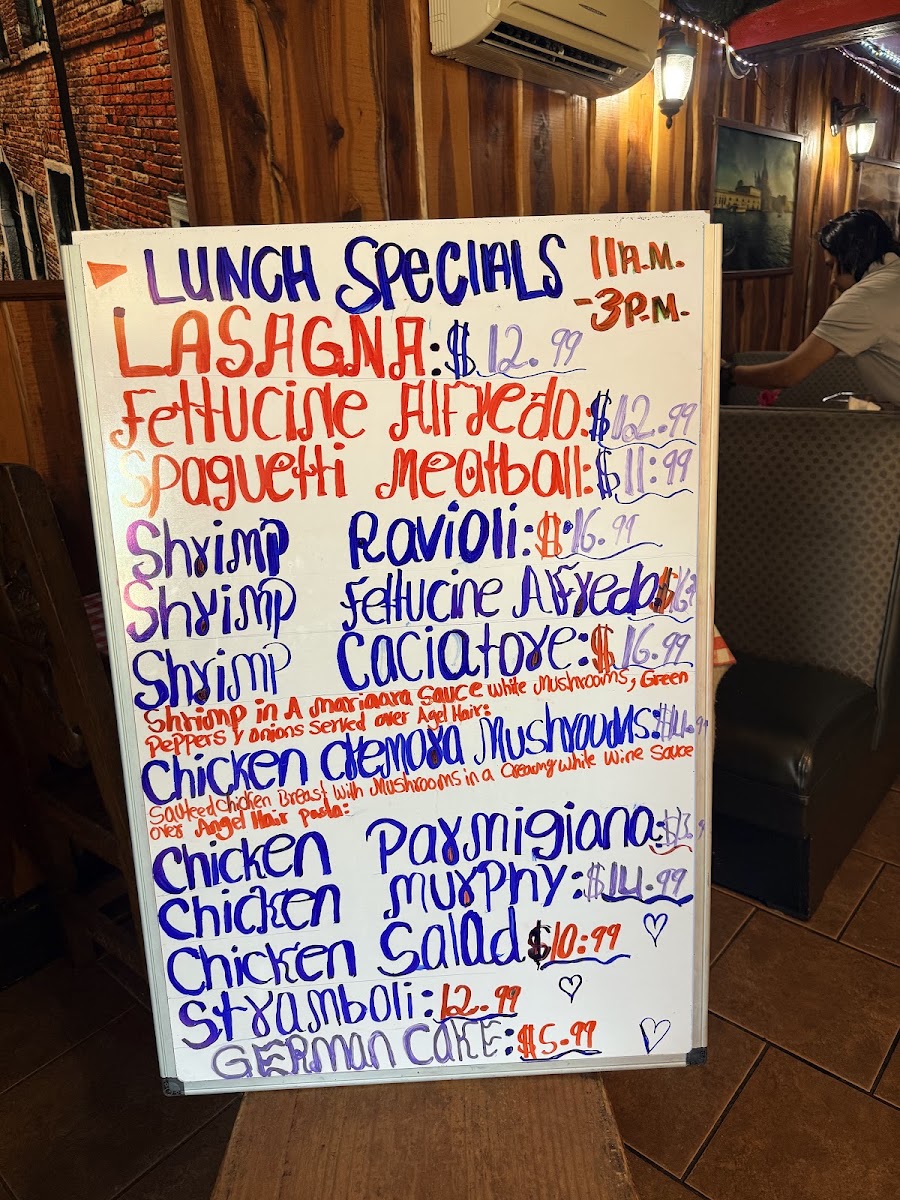 LUNCH SPECIALS 11A.M.
-3P.M.
LASAGNA:$12.99
Fettucine Alfredo:$12.99
Spaguetti Meatball:$11.99
Shrimp Ravioli:$16.99
Shrimp Fettucine Alfredo
Shrimp Caciatore:$16.99
Shrimp in A Marinara Sauce white Mushrooms, Green
Peppers y onions Served over Agel Hair:
Chicken cremora Mushrooms:
Sauteed chicken Breast With Mushrooms in a Creamy While Wine Sauce
over Angel Hair Pasta:
Chicken Parmigiana:
Chicken Murphy:$14.99
Chicken Salad $10.99
Stramboli:12.99
GERMAN CAKE:$5.99